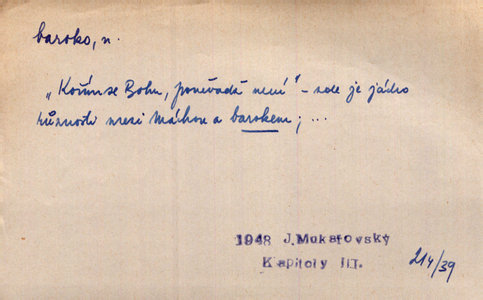 baroko, n.
„Kořím se Bohu, poněvadž není“ – zde je jádro
různosti mezi Máchou a barokem; ...
1948 J. Mukařovský
Kapitoly III.
214/39